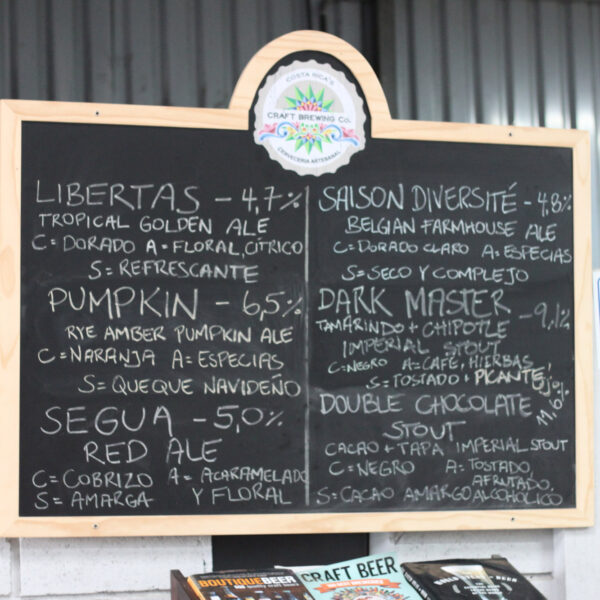 COSTA RICA'S
CRAFT BREWING CO.
CERVECERIA ARTESANAL
LIBERTAS - 4,7%
TROPICAL GOLDEN ALE
C=DORADO A=FLORAL, CÍTRICO
S=REFRESCANTE
PUMPKIN - 6,5%
RYE AMBER PUMPKIN ALE
C=NARANJA A=ESPECIAS
S=QUEQUE NAVIDEÑO
SEGUA - 5,0%
RED ALE
C=COBRIZO A=ACARAMELADO
S=AMARGA Y FLORAL
SAISON DIVERSITÉ - 4,8%
BELGIAN FARMHOUSE ALE
C=DORADO CLARO A=ESPECIAS
S=SECO Y COMPLEJO
DARK MASTER - 9,1%
TAMARINDO + CHIPOTLE
IMPERIAL STOUT
C=NEGRO A=CAFÉ, HIERBAS,
S=TOSTADO + PICANTE
DOUBLE CHOCOLATE 11,0%
STOUT
CACAO + TAPA IMPERIAL STOUT
C=NEGRO A=TOSTADO,
AFRUTADO,
S=CACAO AMARGO, ALCOHÓLICO
BOUTIQUE BEER
CRAFT BEER